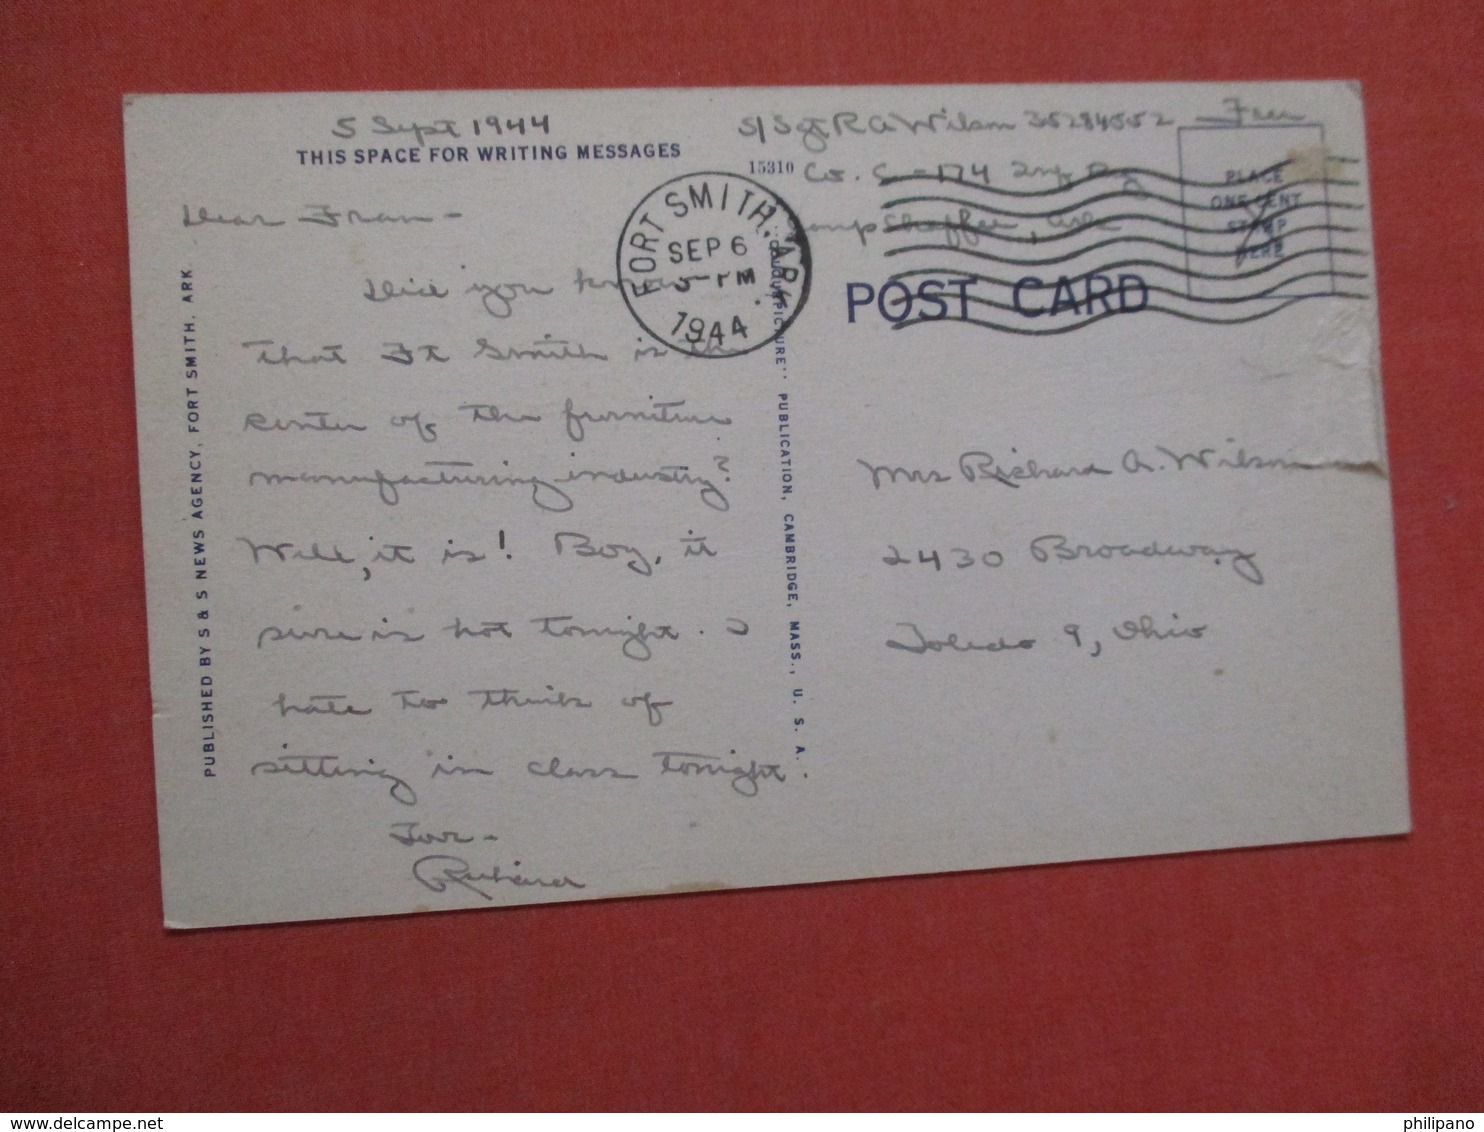 5 Sept 1944
THIS SPACE FOR WRITING MESSAGES
Dear Fran -
Did you know
that Ft Smith is the
center of the furniture
manufacturing industry?
Well, it is! Boy, it
sure is hot tonight. I
hate to think of
sitting in class tonight.
Love -
Richard
PUBLISHED BY S & S NEWS AGENCY, FORT SMITH, ARK
FORT SMITH, ARK.
SEP 6
5-PM
1944
PICTURE" PUBLICATION, CAMBRIDGE, MASS., U. S. A.
15310
S/Sgt R A Wilson 35284552
Co. C - 174 Inf
Camp Chaffee, Ark
Free
PLACE
ONE CENT
STAMP
HERE
POST CARD
Mrs Richard A. Wilson
2430 Broadway
Toledo 9, Ohio
philipano
delcampe.net